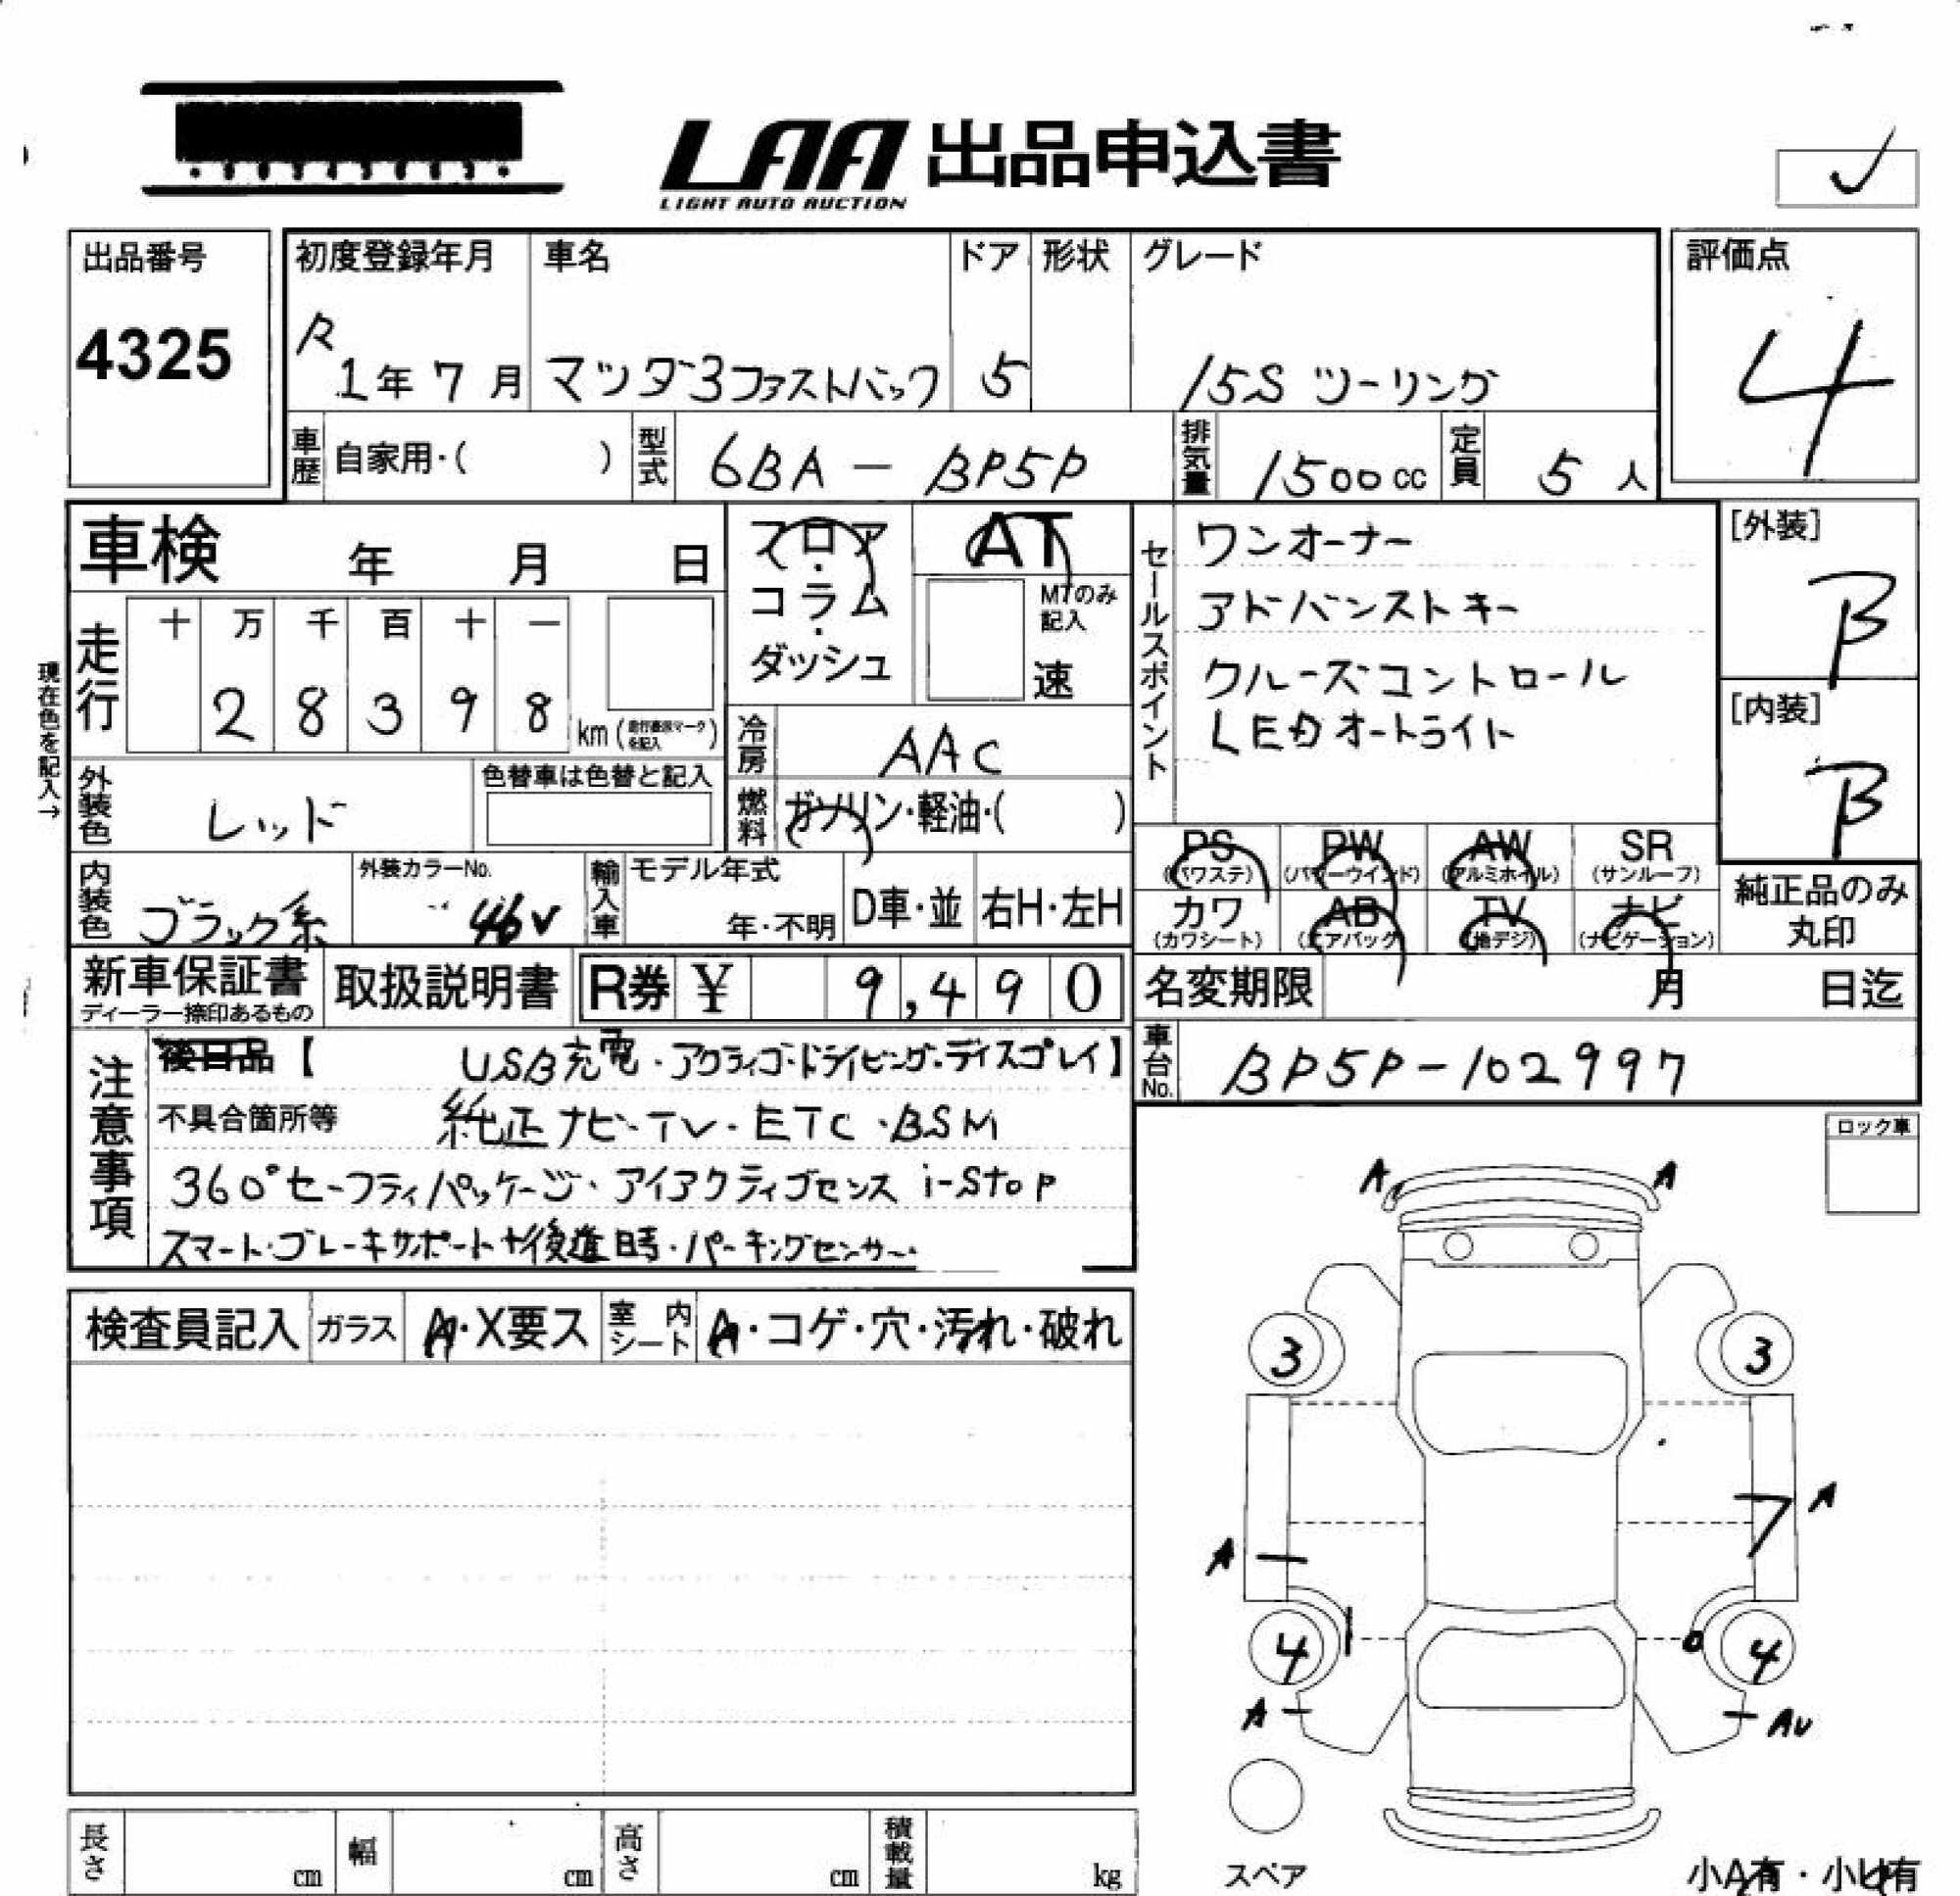 LAA 出品申込書
LIGHT AUTO AUCTION
出品番号
4325
初度登録年月 車名 ドア 形状 グレード
R 1年 7月 マツダ3ファストバック 5 15S ツーリング
評価点
4
車歴 自家用・( ) 型式 6BA-BP5P 排気量 1500cc 定員 5人
車検 年 月 日
フロア・コラム・ダッシュ
AT
MTのみ記入
速
現在色を記入→
走行 十 万 千 百 十 一
2 8 3 9 8 km (走行要示マークを記入)
冷房 AAC
燃料 ガソリン・軽油・( )
外装色 レッド
色替車は色替と記入
内装色 ブラック系
外装カラーNo. 46V
輸入車 モデル年式 年・不明 D車・並 右H・左H
セールスポイント
ワンオーナー
アドバンストキー
クルーズコントロール
LEDオートライト
[外装]
B
[内装]
B
PS (パワステ) PW (パワーウインド) AW (アルミホイル) SR (サンルーフ)
カワ (カワシート) AB (エアバッグ) TV (地デジ) ナビ (ナビゲーション)
純正品のみ丸印
新車保証書
ディーラー捺印あるもの
取扱説明書 R券 ¥ 9,490
名変期限 月 日迄
車台No. BP5P-102997
注意事項
後日品【 USB充電・アクティブ・ドライビング・ディスプレイ】
不具合箇所等 純正ナビ・TV・ETC・BSM
360°セーフティパッケージ・アイアクティブセンス i-stop
スマート・ブレーキサポート+後進時・パーキングセンサー
ロック車
検査員記入 ガラス A・X要ス 室内シート A・コゲ・穴・汚れ・破れ
A A
3 3
A
A
4 4
A AU
スペア
小A有・小U有
長さ cm 幅 cm 高さ cm 積載量 kg